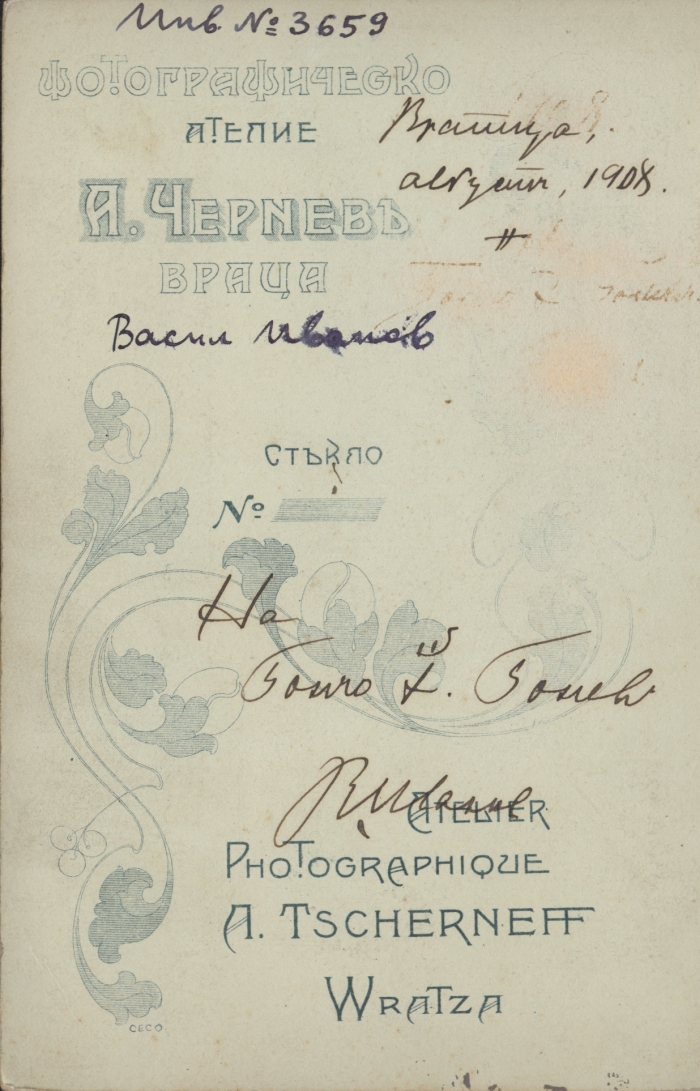 Инв № 3659
ФОТОГРАФИЧЕСКО
АТЕЛИЕ
Вратица,
августъ, 1908.
А. ЧЕРНЕВЪ
ВРАЦА
Васил Иванов
СТЪКЛО
№
На
Бончо Боневъ
В. Иванов
ATELIER
PHOTOGRAPHIQUE
A. TSCHERNEFF
WRATZA
CECO